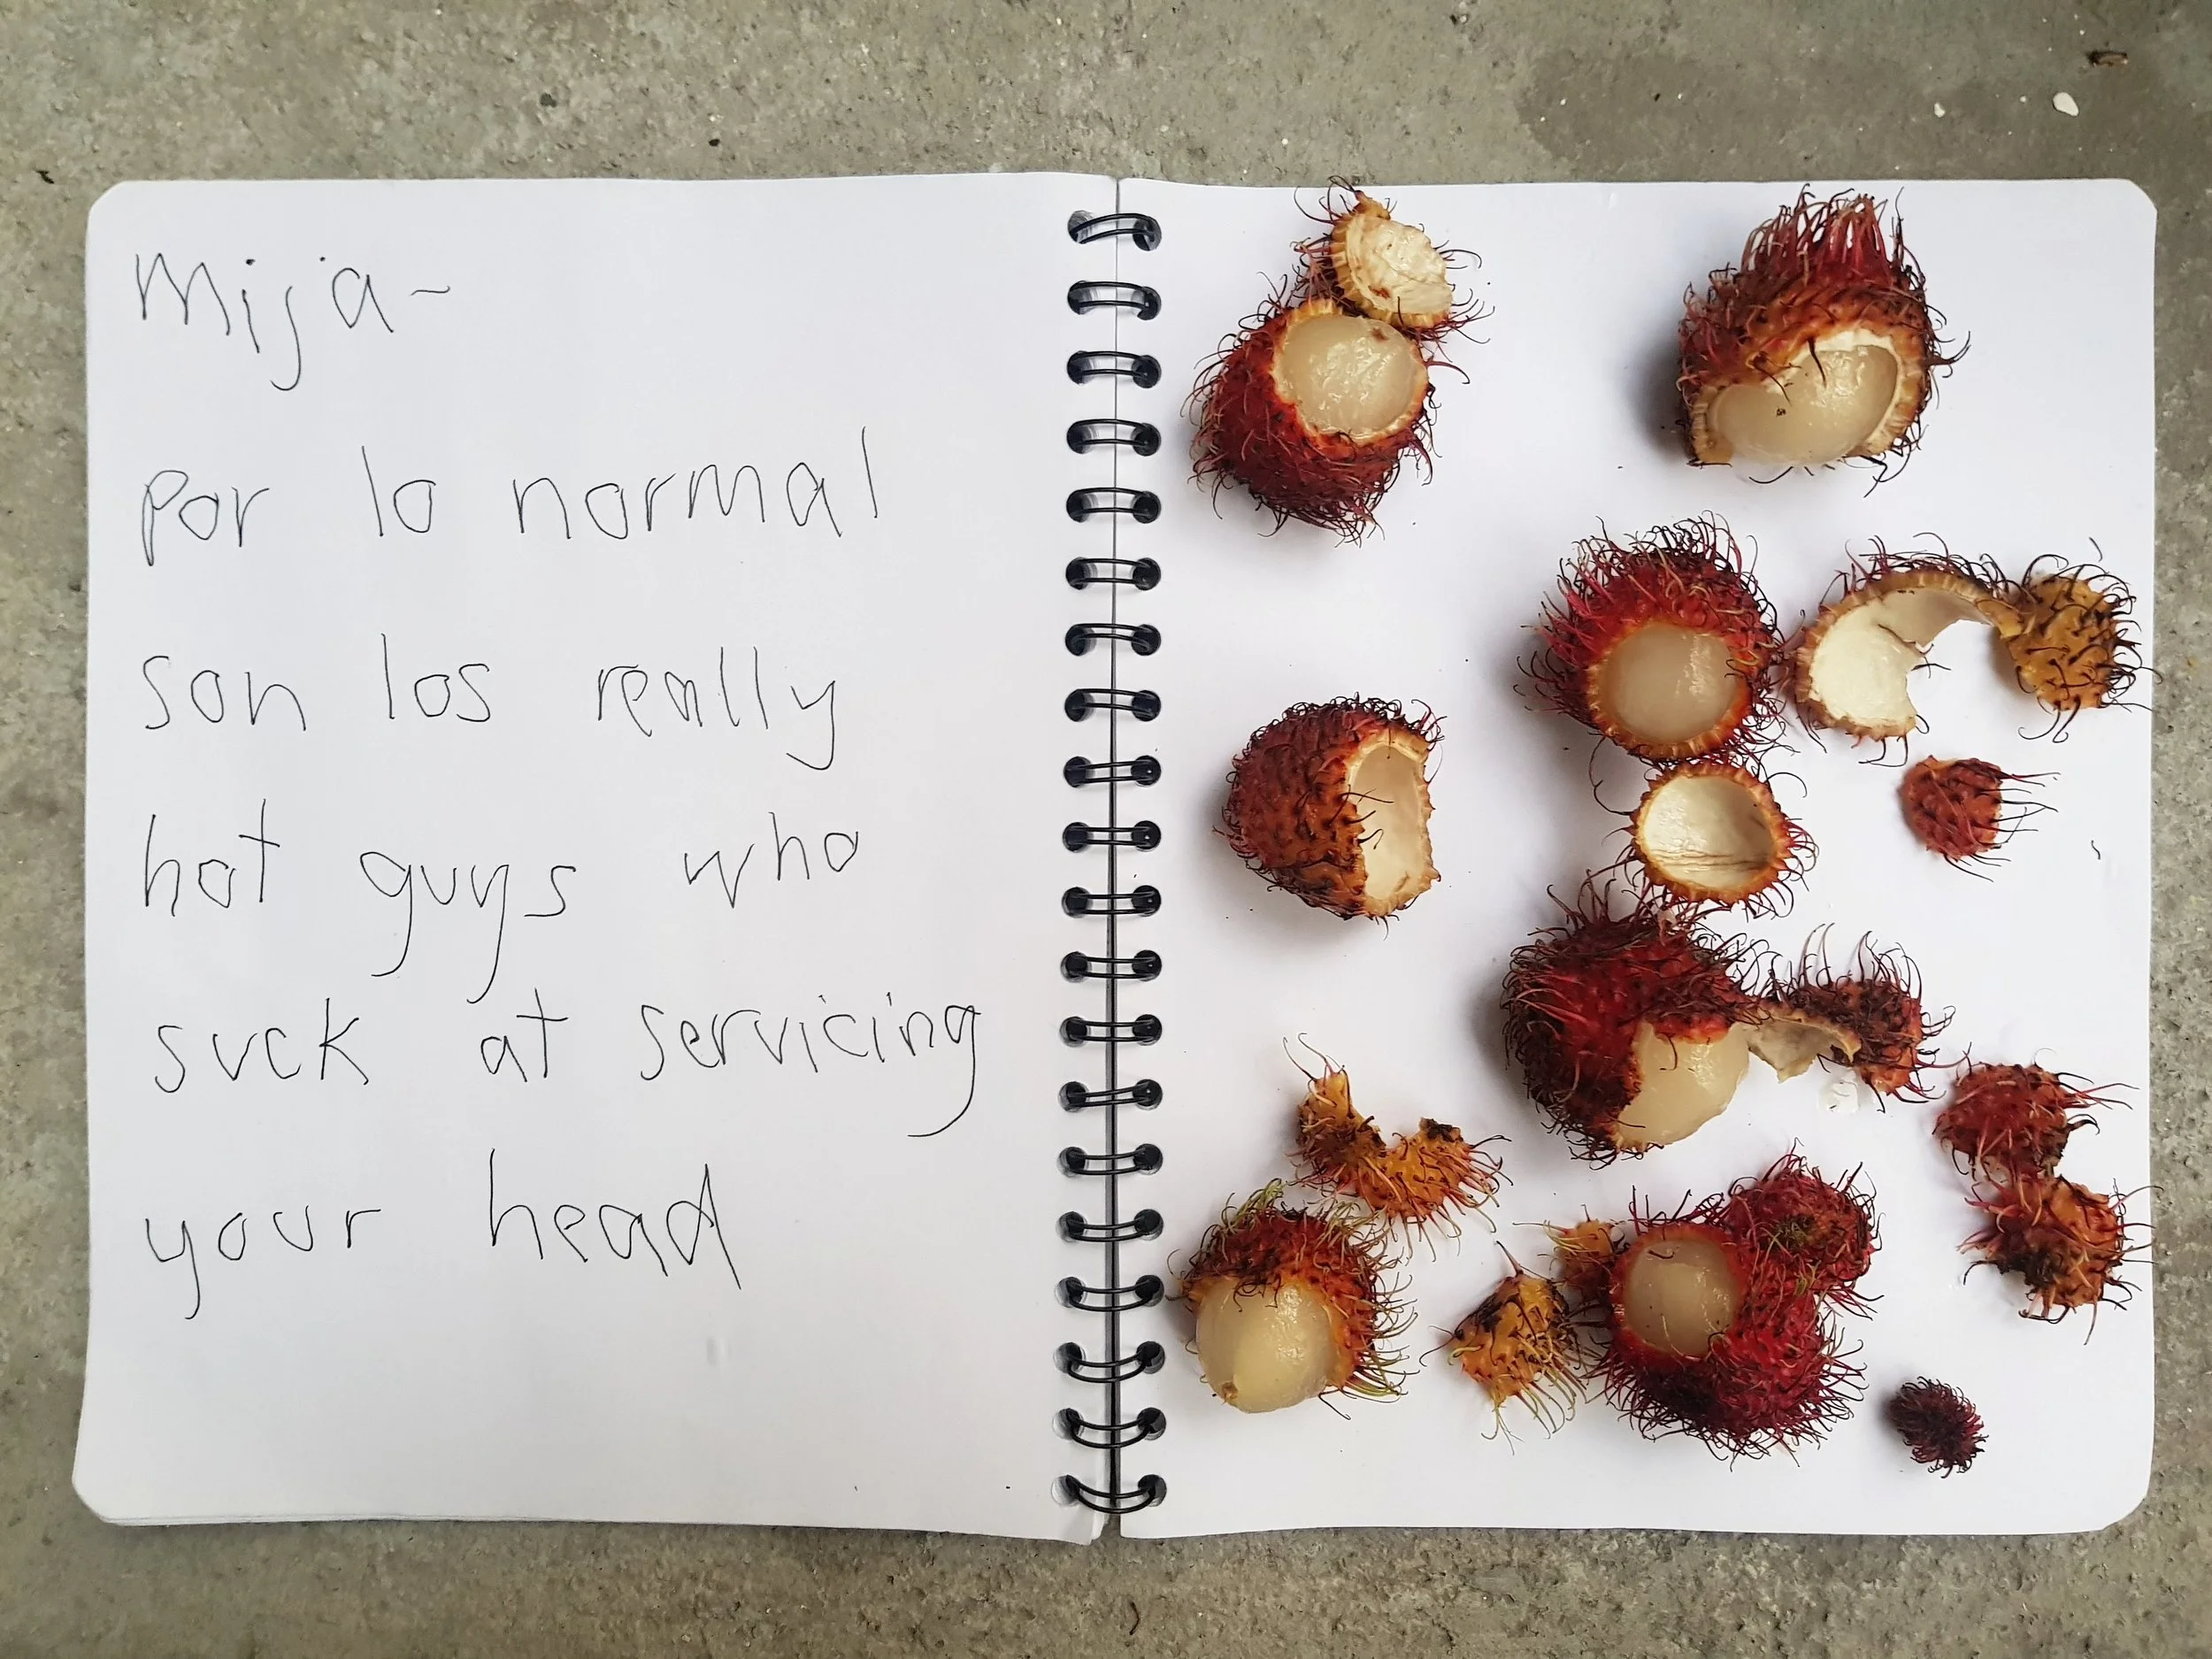 mija-
por lo normal
son los really
hot guys who
suck at servicing
your head